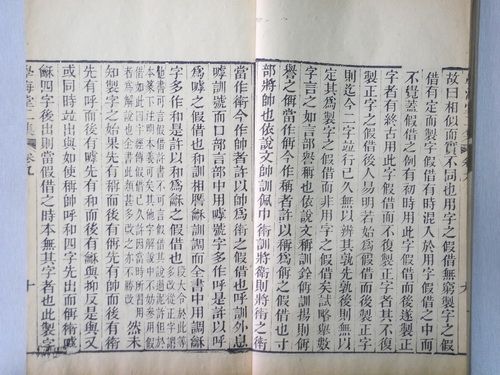 故曰相似而實不同也用字之假借無窮製字之假
借有定而製字假借有時混入於用字假借之中而
不覺蓋假借之例有初時用此字假借而後遂製正
字者有終古用此字假借而不復製正字者其不復
製正字之假借後人易明若始爲假借而後製正字
則迄今二字並行已久無以辨其孰先孰後則無以
定其爲製字之假借而非用字之假借矣試略舉數
字言之如言部譽稱也依說文稱訓銓偁訓揚則偁
譽之偁當作偁今作稱者許以稱爲偁之假借也寸
部將帥也依說文帥訓佩巾𧗿訓將𧗿則將𧗿之𧗿
當作𧗿今作帥者許以帥爲𧗿之假借也呼訓外息
嘑訓號而口部言部中嘑字多作呼是許以呼
爲嘑之假借也和訓相應龢訓調而全書中用調龢
字多作和是許以和爲龢之假借也
然未
知製字之始果先有稱而後有偁先有帥而後有𧗿
先有呼而後有嘑先有和而後有龢與抑反是與又
或同時並出與如使稱帥呼和四字先出而偁𧗿嘑
龢四字後出則當假借之時本無其字者也此製字
學海堂二集 卷五 十